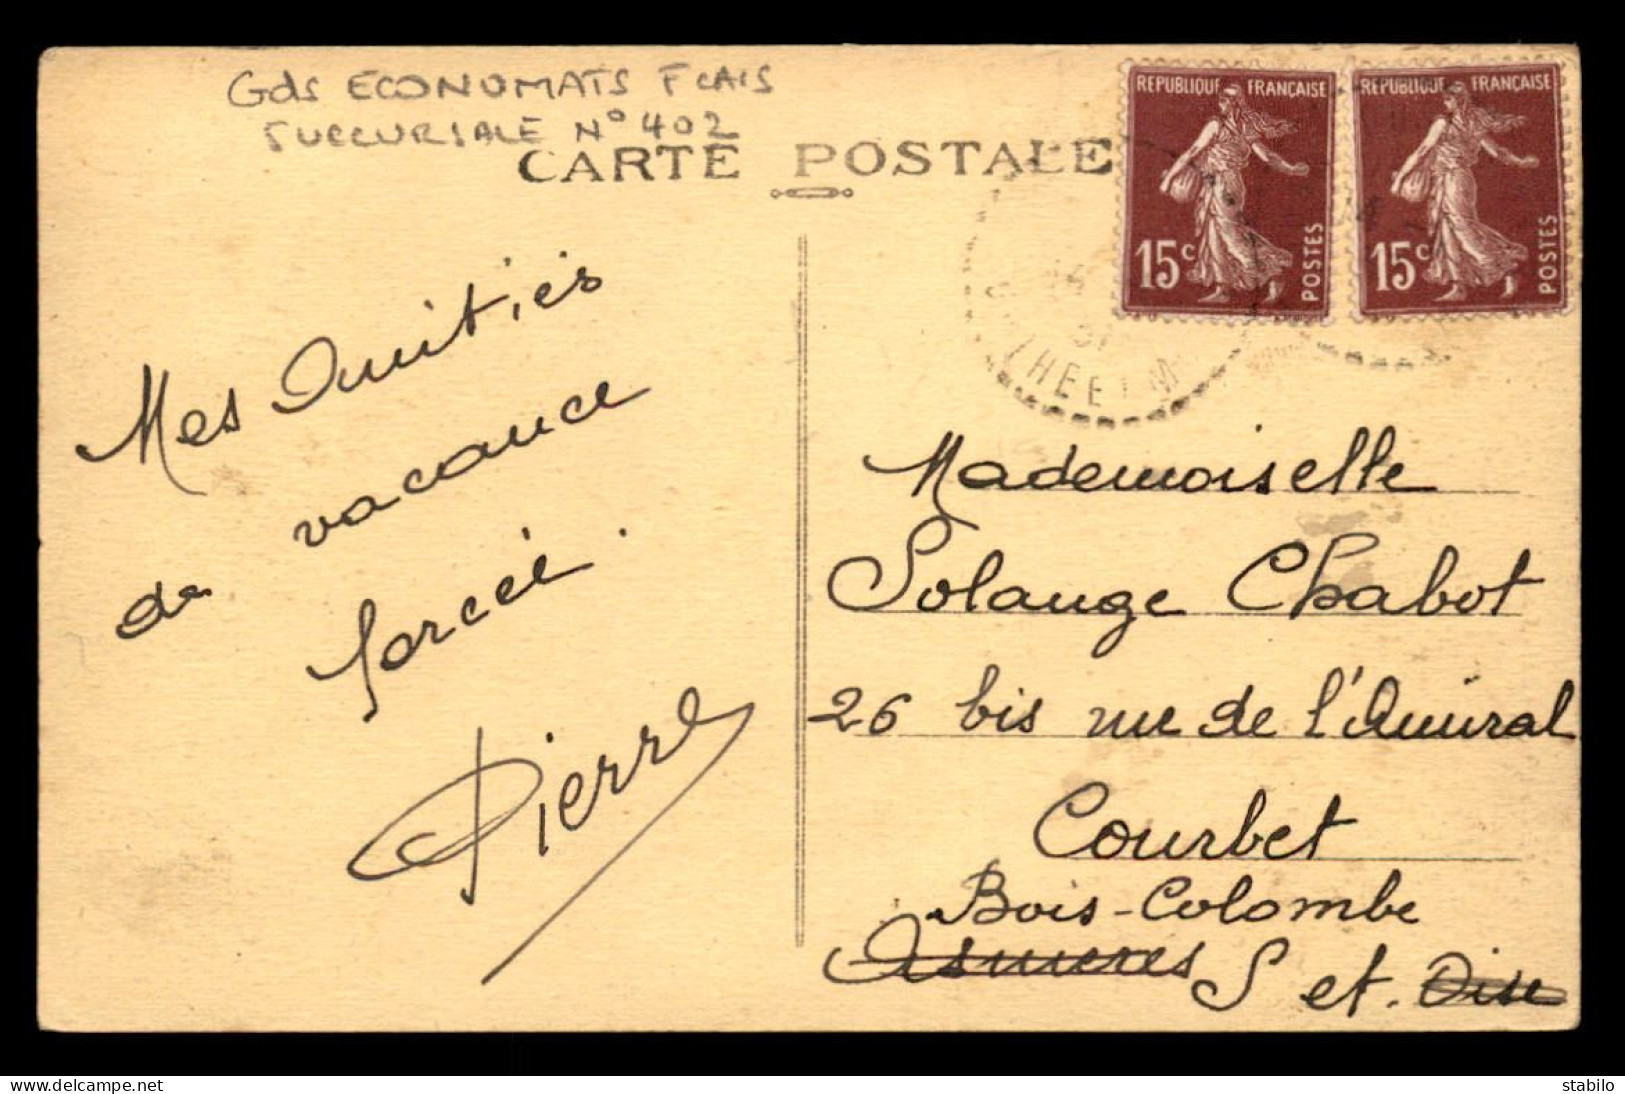 Gds ECONOMATS FCAIS
SUCCURSALE N° 402
CARTE POSTALE
REPUBLIQUE FRANÇAISE
15c POSTES
REPUBLIQUE FRANÇAISE
15c POSTES
31
Mes Amitiés
de vacance
forcée.
Pierre
Mademoiselle
Solange Chabot
26 bis rue de l'Amiral
Courbet
Bois-Colombe
Asnieres S et. Oise
www.delcampe.net
stabilo